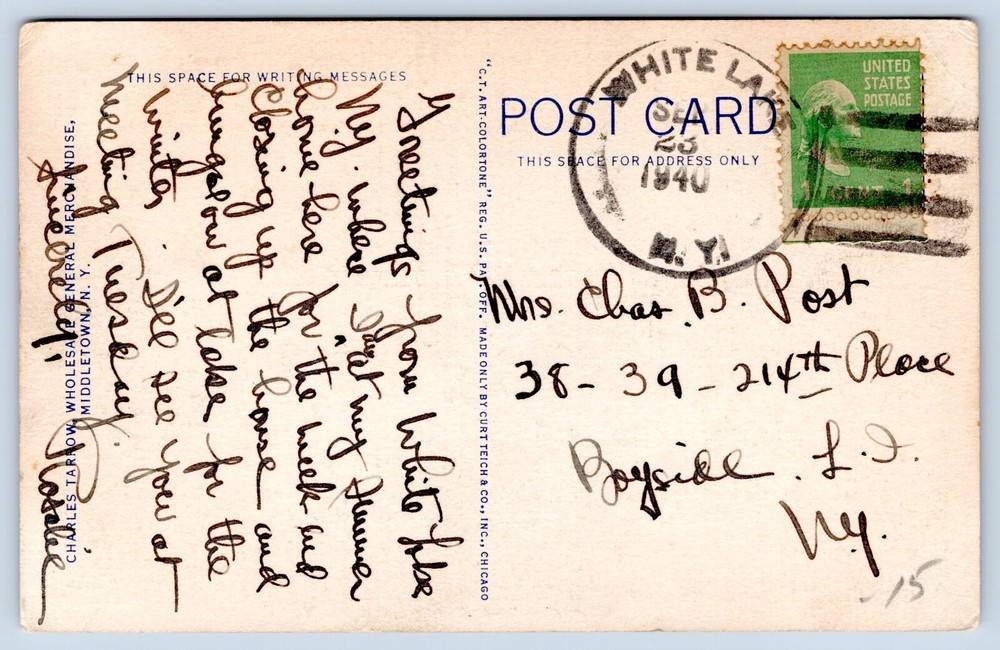 THIS SPACE FOR WRITING MESSAGES
Greetings from White Lake
N.Y. where I am at my summer
home here for the week end
Closing up the house and
bungalow at lake for the
winter. I'll see you at
meeting Tuesday.
Sincerely, Rosalie
CHARLES TARROW, WHOLESALE GENERAL MERCHANDISE,
MIDDLETOWN, N. Y.
"C.T. ART-COLORTONE" REG. U.S. PAT. OFF. MADE ONLY BY CURT TEICH & CO., INC., CHICAGO
POST CARD
THIS SPACE FOR ADDRESS ONLY
WHITE LAKE
SEP
23
1940
N.Y.
UNITED
STATES
POSTAGE
1 CENT 1
Mrs. Chas. B. Post
38-39-214th Place
Bayside L.I.
N.Y.
15